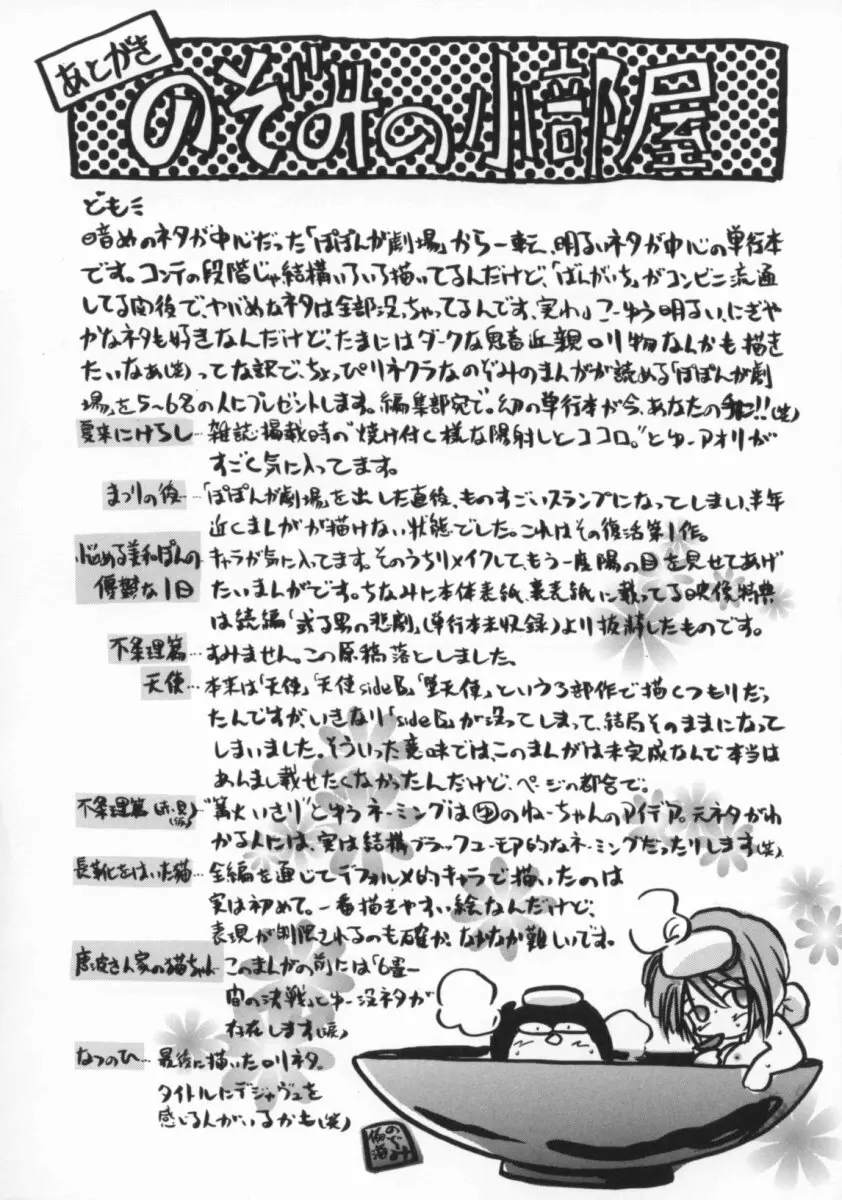 あとがき
のぞみの小部屋
ども
暗めのネタが中心だった「ぽぽんが劇場」から一転、明るいネタが中心の単行本
です。コンテの段階じゃ結構いろいろ描いてるんだけど、「ばんがいち」がコンビニ流通
してる関係で、ヤバめなネタは全部没っちゃってるんです、実わ」こーゆう明るい、にぎや
かなネタも好きなんだけど、たまにはダークな鬼畜近親ロリ物なんかも描き
たいなぁ(笑)ってな訳で、ちょっぴりネクラなのぞみのまんがが読める「ぽぽんが劇
場」を5〜6名の人にプレゼントします。編集部宛で。幻の単行本が今、あなたの手に!!(笑)
夏来にけらし…雑誌掲載時の“焼け付く様な陽射しとココロ。”とゆーアオリが
すごく気に入ってます。
まつりの後…「ぽぽんが劇場」を出した直後、ものすごいスランプになってしまい、半年
近くまんがが描けない状態でした。これはその復活第1作。
悩める美和ぽんの
優鬱な1日
キャラが気に入ってます。そのうちリメイクして、もう一度陽の目を見せてあげ
たいまんがです。ちなみに本体表紙、裏表紙に載ってる映像特典
は続編「或る男の悲劇」(単行本未収録)より抜粋したものです。
不条理篇…すみません。この原稿落としました。
天使…本来は「天使」「天使sideB」「堕天使」という3部作で描くつもりだっ
たんですが、いきなり「sideB」が没ってしまって、結局そのままになって
しまいました。そういった意味では、このまんがは未完成なんで本当は
あんまし載せたくなかったんだけど、ページの都合で。
不条理篇
“篝火いさり”とゆうネーミングは㊥のねーちゃんのアイデア。元ネタがわ
かる人には、実は結構ブラックユーモア的なネーミングだったりします(笑)
長靴をはいた猫…全編を通じてデフォルメ的キャラで描いたのは
実は初めて。一番描きやすい絵なんだけど、
表現が制限されるのも確か。なかなか難しいです。
さん家の猫ちゃん
このまんがの前には「6畳一
間の決戦」とゆー没ネタが
存在します(涙)
なつのひ…最後に描いたロリネタ。
タイトルにデジャヴュを
感じる人がいるかも(笑)